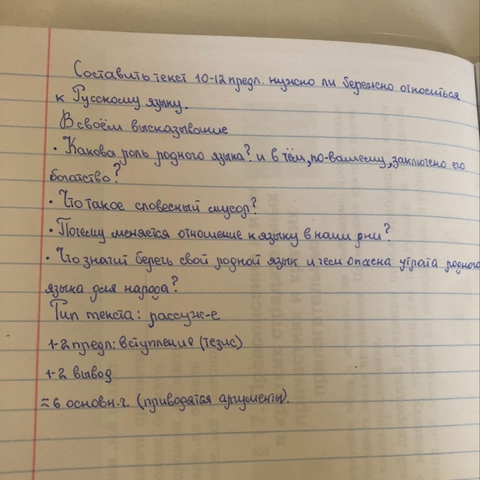 Составить текст 10-12 предл. нужно ли бережно относиться
к Русскому языку.
В своём высказывание
• Какова роль родного языка? и в чём, по-вашему, заключено его
богатство?
• Что такое словесный мусор?
• Почему меняется отношение к языку в наши дни?
• Что значит беречь свой родной язык и чем опасна утрата родного
языка для народа?
Тип текста: рассужд-е
1-2 предл: вступления (тезис)
1-2 вывод
≈ 6 основн.ч. (приводятся аргументы).